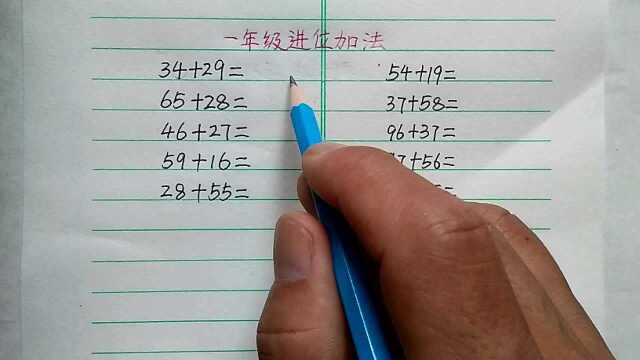 一年级进位加法
34+29= 54+19=
65+28= 37+58=
46+27= 96+37=
59+16= 7+56=
28+55= =